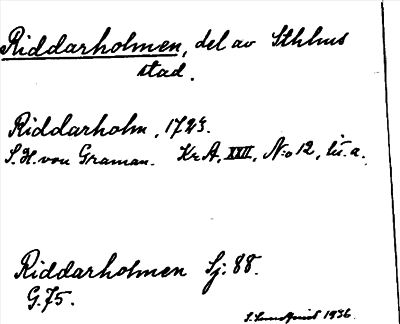 Riddarholmen, del av Sthlms
stad.
Riddarholm, 1723.
S. H. von Graman. Kr A, XXII, N:o 12, lit. a.
Riddarholmen Sj: 88.
G. 75.
S. Lundqvist 1936.